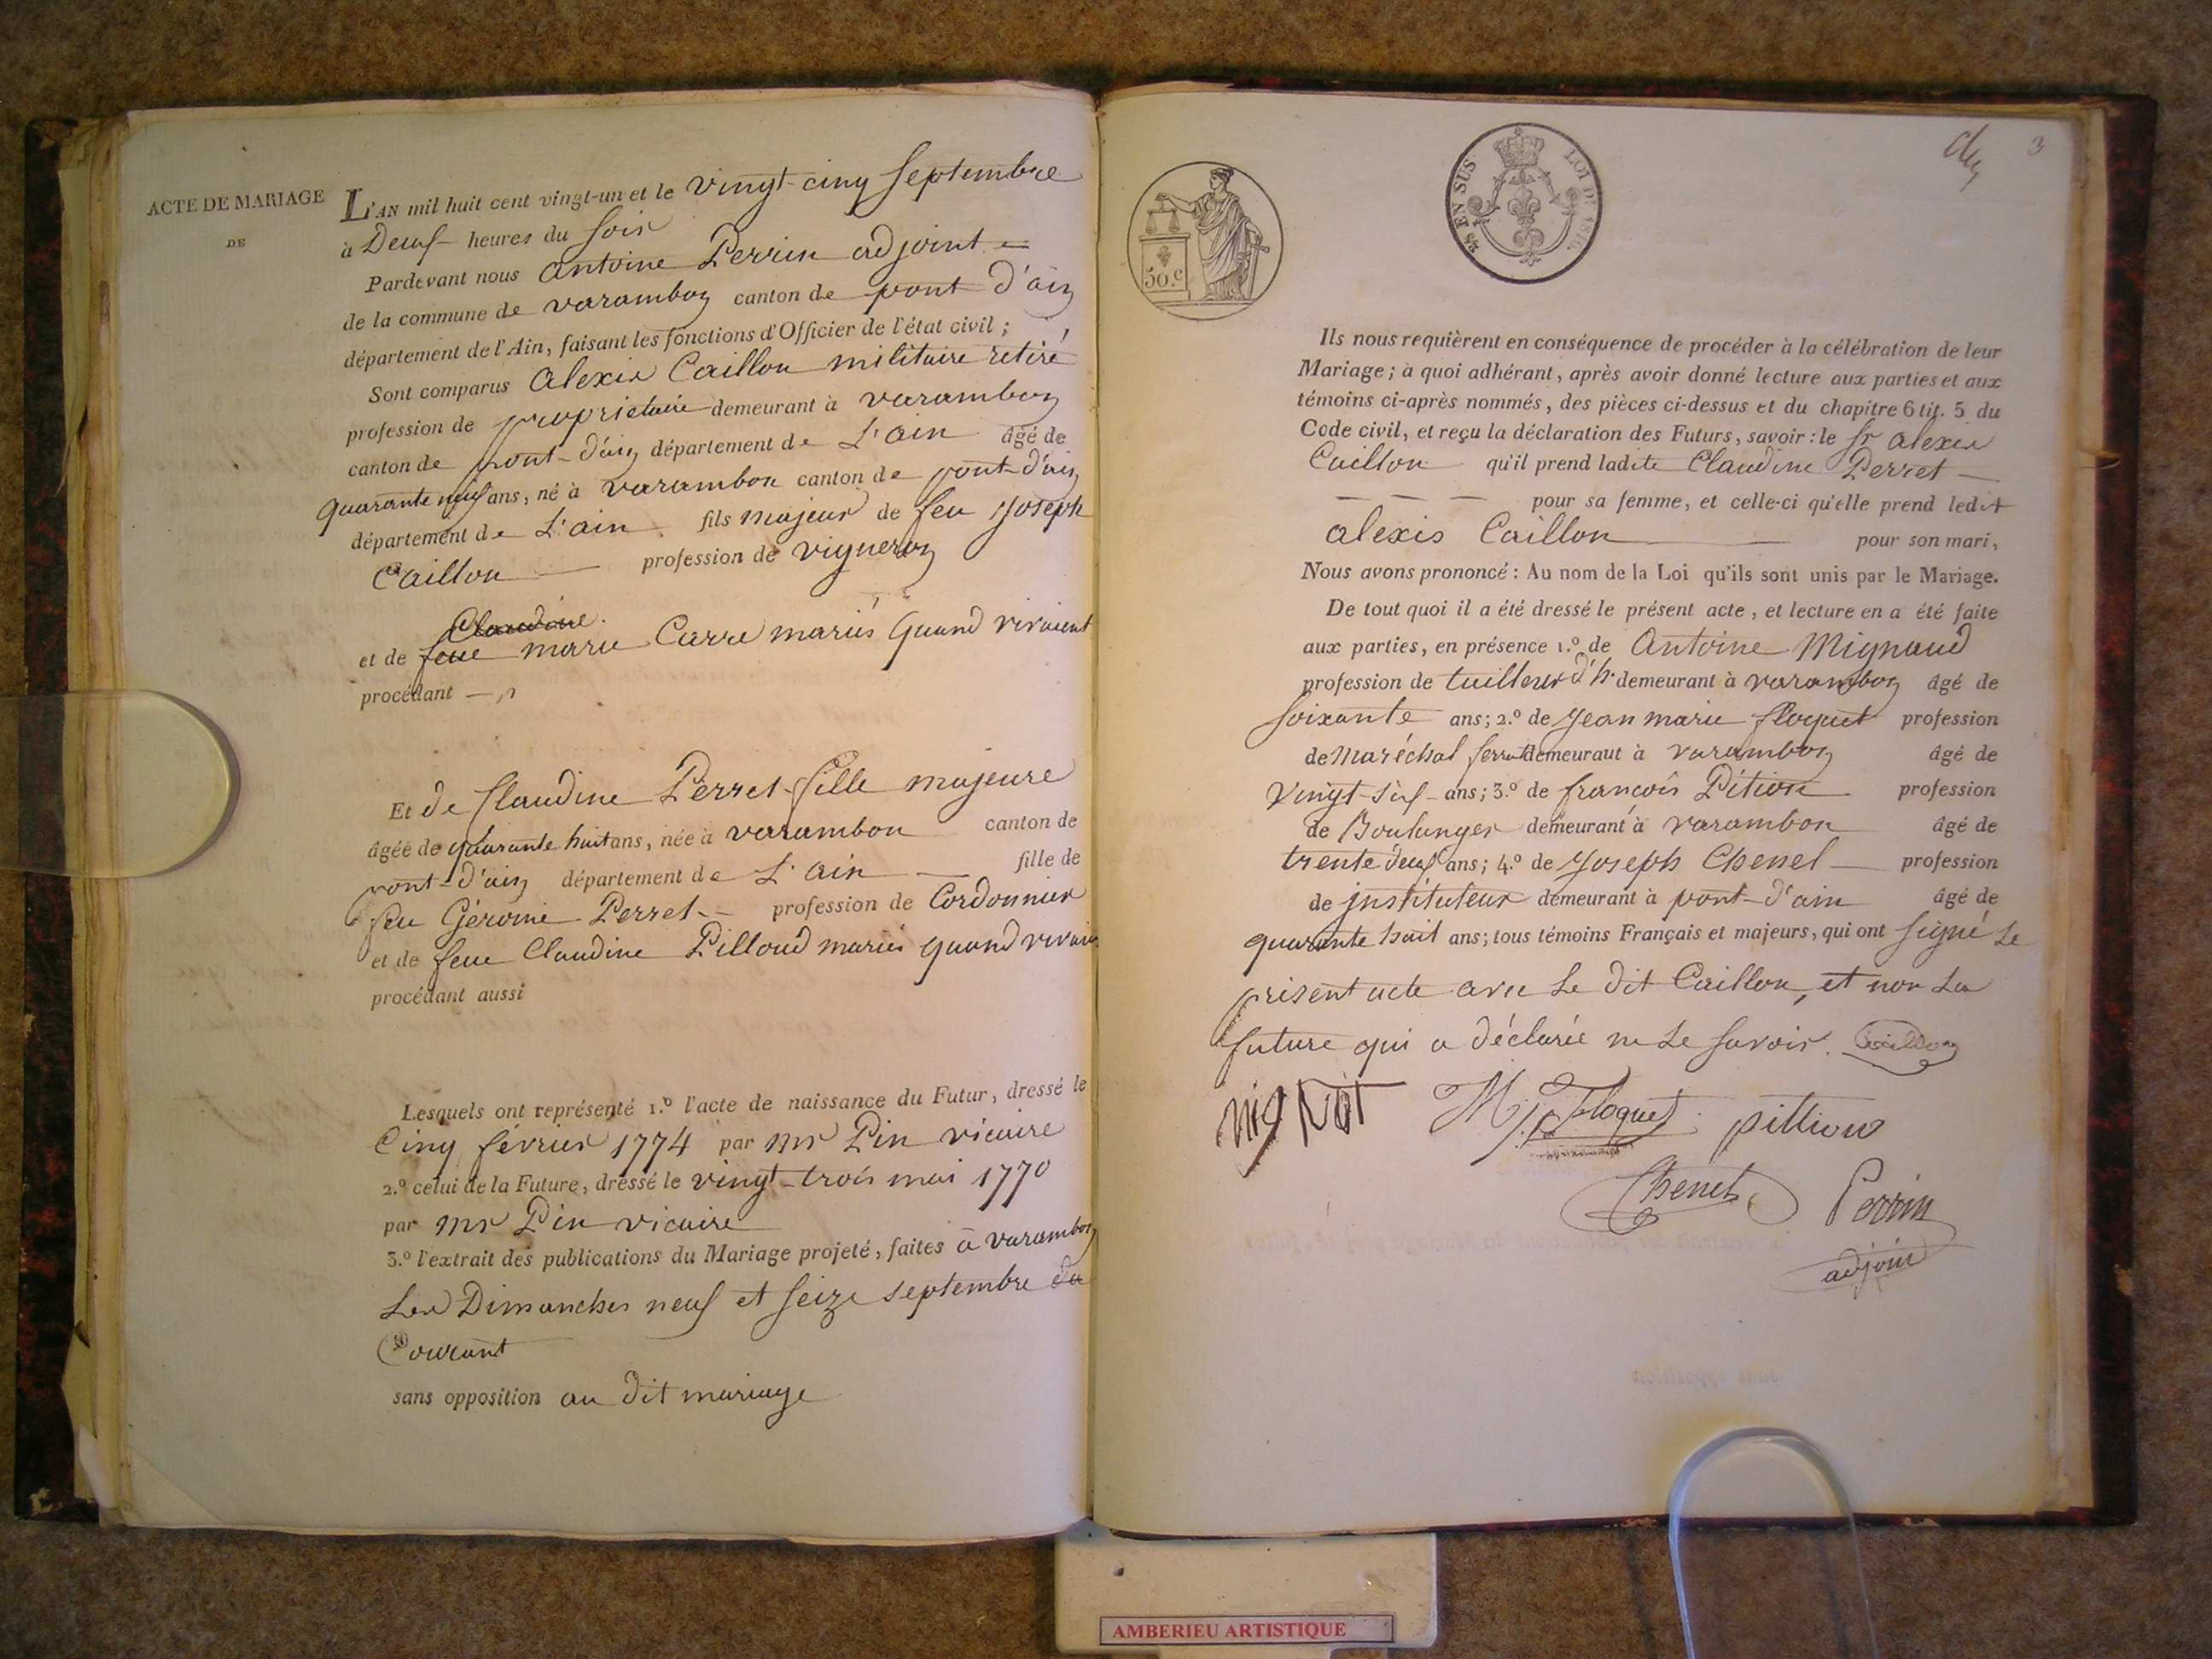 ACTE DE MARIAGE
DE
L'AN mil huit cent vingt-un et le vingt-cinq Septembre
à Deux heures du soir
Pardevant nous antoine Perrin adjoint
de la commune de varambon canton de pont d'ain
département de l'Ain, faisant les fonctions d'Officier de l'état civil ;
Sont comparus alexis Caillon militaire retiré
profession de proprietaire demeurant à varambon
canton de pont-d'ain département de L'ain âgé de
quarante neuf ans, né à varambon canton de pont-d'ain
département de L'ain fils majeur de feu Joseph
Caillon profession de vigneron
Claudine
et de feue marie Carre mariés quand vivaient
procédant
Et de Claudine Perret fille majeure
âgée de quarante huit ans, née à varambon canton de
pont-d'ain département de L'ain fille de
feu Gérome Perret profession de Cordonnier
et de feue Claudine Pilloud mariés quand vivaient
procédant aussi
Lesquels ont représenté 1.º l'acte de naissance du Futur, dressé le
Cinq février 1774 par mr Pin vicaire
2.º celui de la Future, dressé le vingt-trois mai 1770
par mr Pin vicaire
3.º l'extrait des publications du Mariage projeté, faites à varambon
Les Dimanches neuf et seize septembre du
Courant
sans opposition au dit mariage
3
EN SUS
LOI DE 1816.
50.c
Ils nous requièrent en conséquence de procéder à la célébration de leur
Mariage ; à quoi adhérant, après avoir donné lecture aux parties et aux
témoins ci-après nommés, des pièces ci-dessus et du chapitre 6 tit. 5 du
Code civil, et reçu la déclaration des Futurs, savoir : le Sr alexis
Caillon qu'il prend ladite Claudine Perret
pour sa femme, et celle-ci qu'elle prend ledit
alexis Caillon pour son mari,
Nous avons prononcé : Au nom de la Loi qu'ils sont unis par le Mariage.
De tout quoi il a été dressé le présent acte, et lecture en a été faite
aux parties, en présence 1.º de Antoine Mignaud
profession de tailleur d'h. demeurant à varambon âgé de
soixante ans ; 2.º de Jean marie floquet profession
de Maréchal ferrant demeuraut à varambon âgé de
vingt-six ans ; 3.º de françois Pition profession
de Boulanger demeurant à varambon âgé de
trente deux ans ; 4.º de Joseph Chenel profession
de instituteur demeurant à pont-d'ain âgé de
quarante huit ans ; tous témoins Français et majeurs, qui ont signé le
présent acte avec le dit Caillon, et non La
future qui a déclarée ne le savoir. Caillon
Mignot M. J. Floquet pittion
Chenel Perrin
adjoin
AMBERIEU ARTISTIQUE